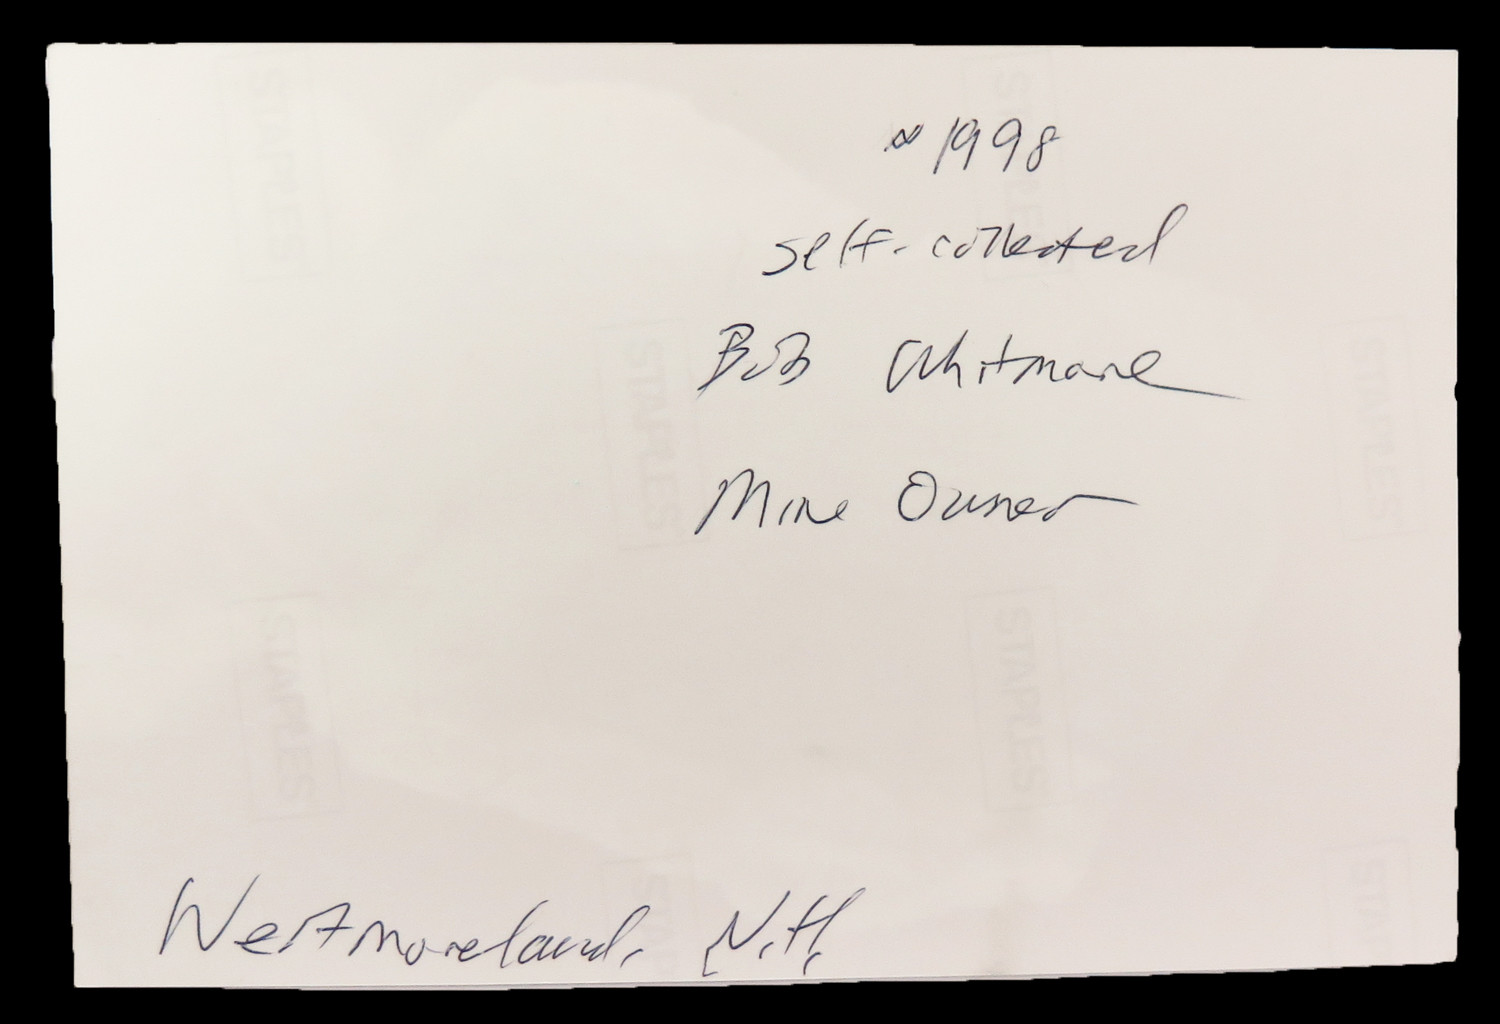 ~1998
self-collected
Bob Whitmore
Mine Owner
Westmoreland, N.H.
STAPLES
STAPLES
STAPLES
STAPLES
STAPLES
STAPLES
STAP
STAP